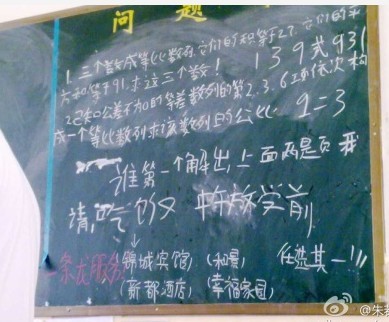 问题
1.三个数成等比数列,它们的积等于27,它们的平
方和等于91.求这三个数! 1 3 9 或 931
2已知公差不为0的等差数列的第2.3.6项依次构
成一个等比数列求该数列的公比. q=3
谁第一个解出上面两是页我
请吃饭
一条龙服务
锦城宾馆, 和
新都酒店, 幸福家园, 任选其一!!!
@朱